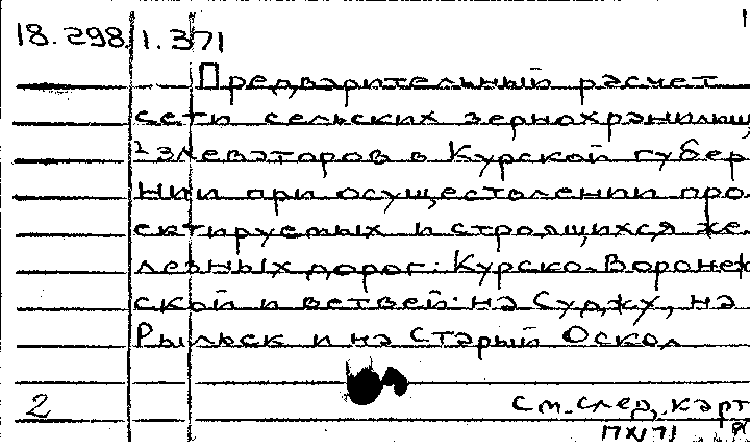 18.298 1.371
Предварительный расчет
сети сельских зернохранилищ
элеваторов в Курской губер
нии при осуществлении про
ектируемых и строящихся же
лезных дорог: Курско-Воронеж
ской и ветвей: на Суджу, на
Рыльск и на Старый Оскол
2
См. след. карт